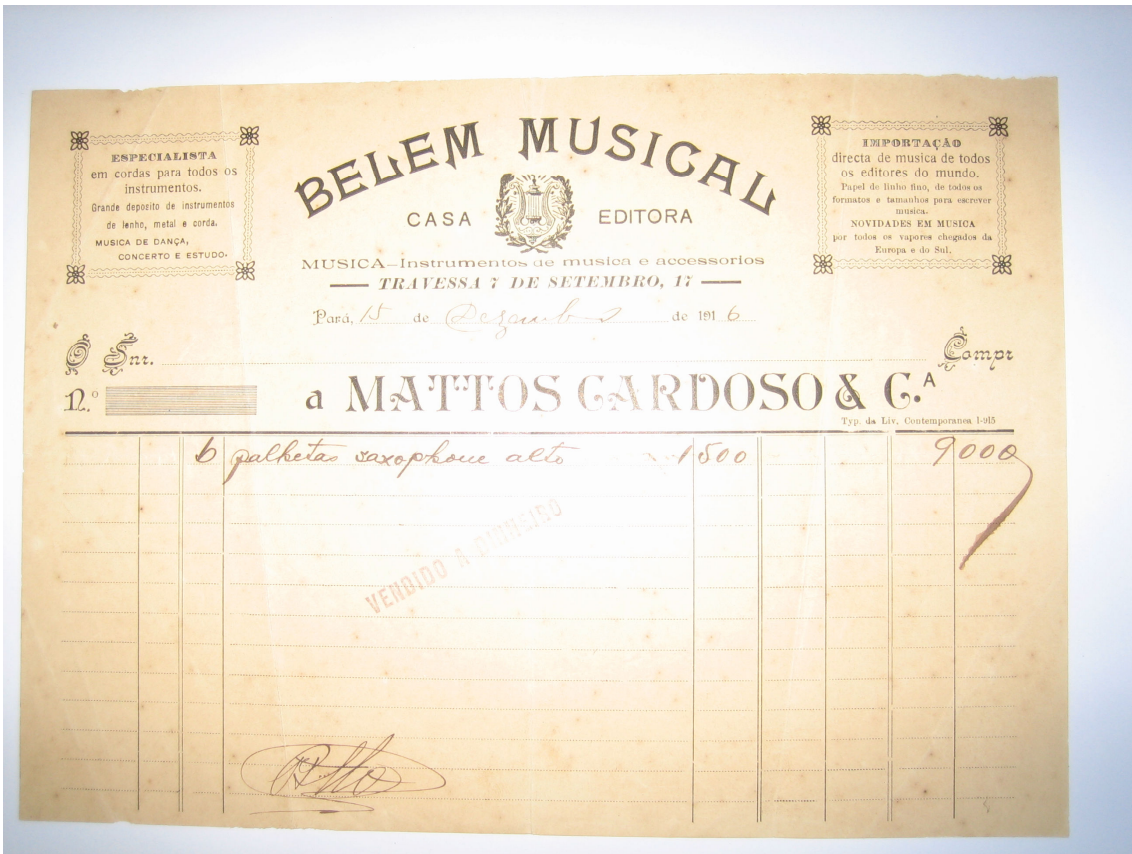 ESPECIALISTA
em cordas para todos os
instrumentos.
Grande deposito de instrumentos
de lenho, metal e corda.
MUSICA DE DANÇA,
CONCERTO E ESTUDO.
BELEM MUSICAL
CASA EDITORA
MUSICA—Instrumentos de musica e accessorios
TRAVESSA 7 DE SETEMBRO, 17
IMPORTAÇÃO
directa de musica de todos
os editores do mundo.
Papel de linho fino, de todos os
formatos e tamanhos para escrever
musica.
NOVIDADES EM MUSICA
por todos os vapores chegados da
Europa e do Sul.
Pará, 15 de Dezembro de 1916
O Snr. Compr
N.º
a MATTOS CARDOSO & C.A
Typ. da Liv. Contemporanea 1-915
6 palhetas saxophone alto 1500 9000
VENDIDO A DINHEIRO